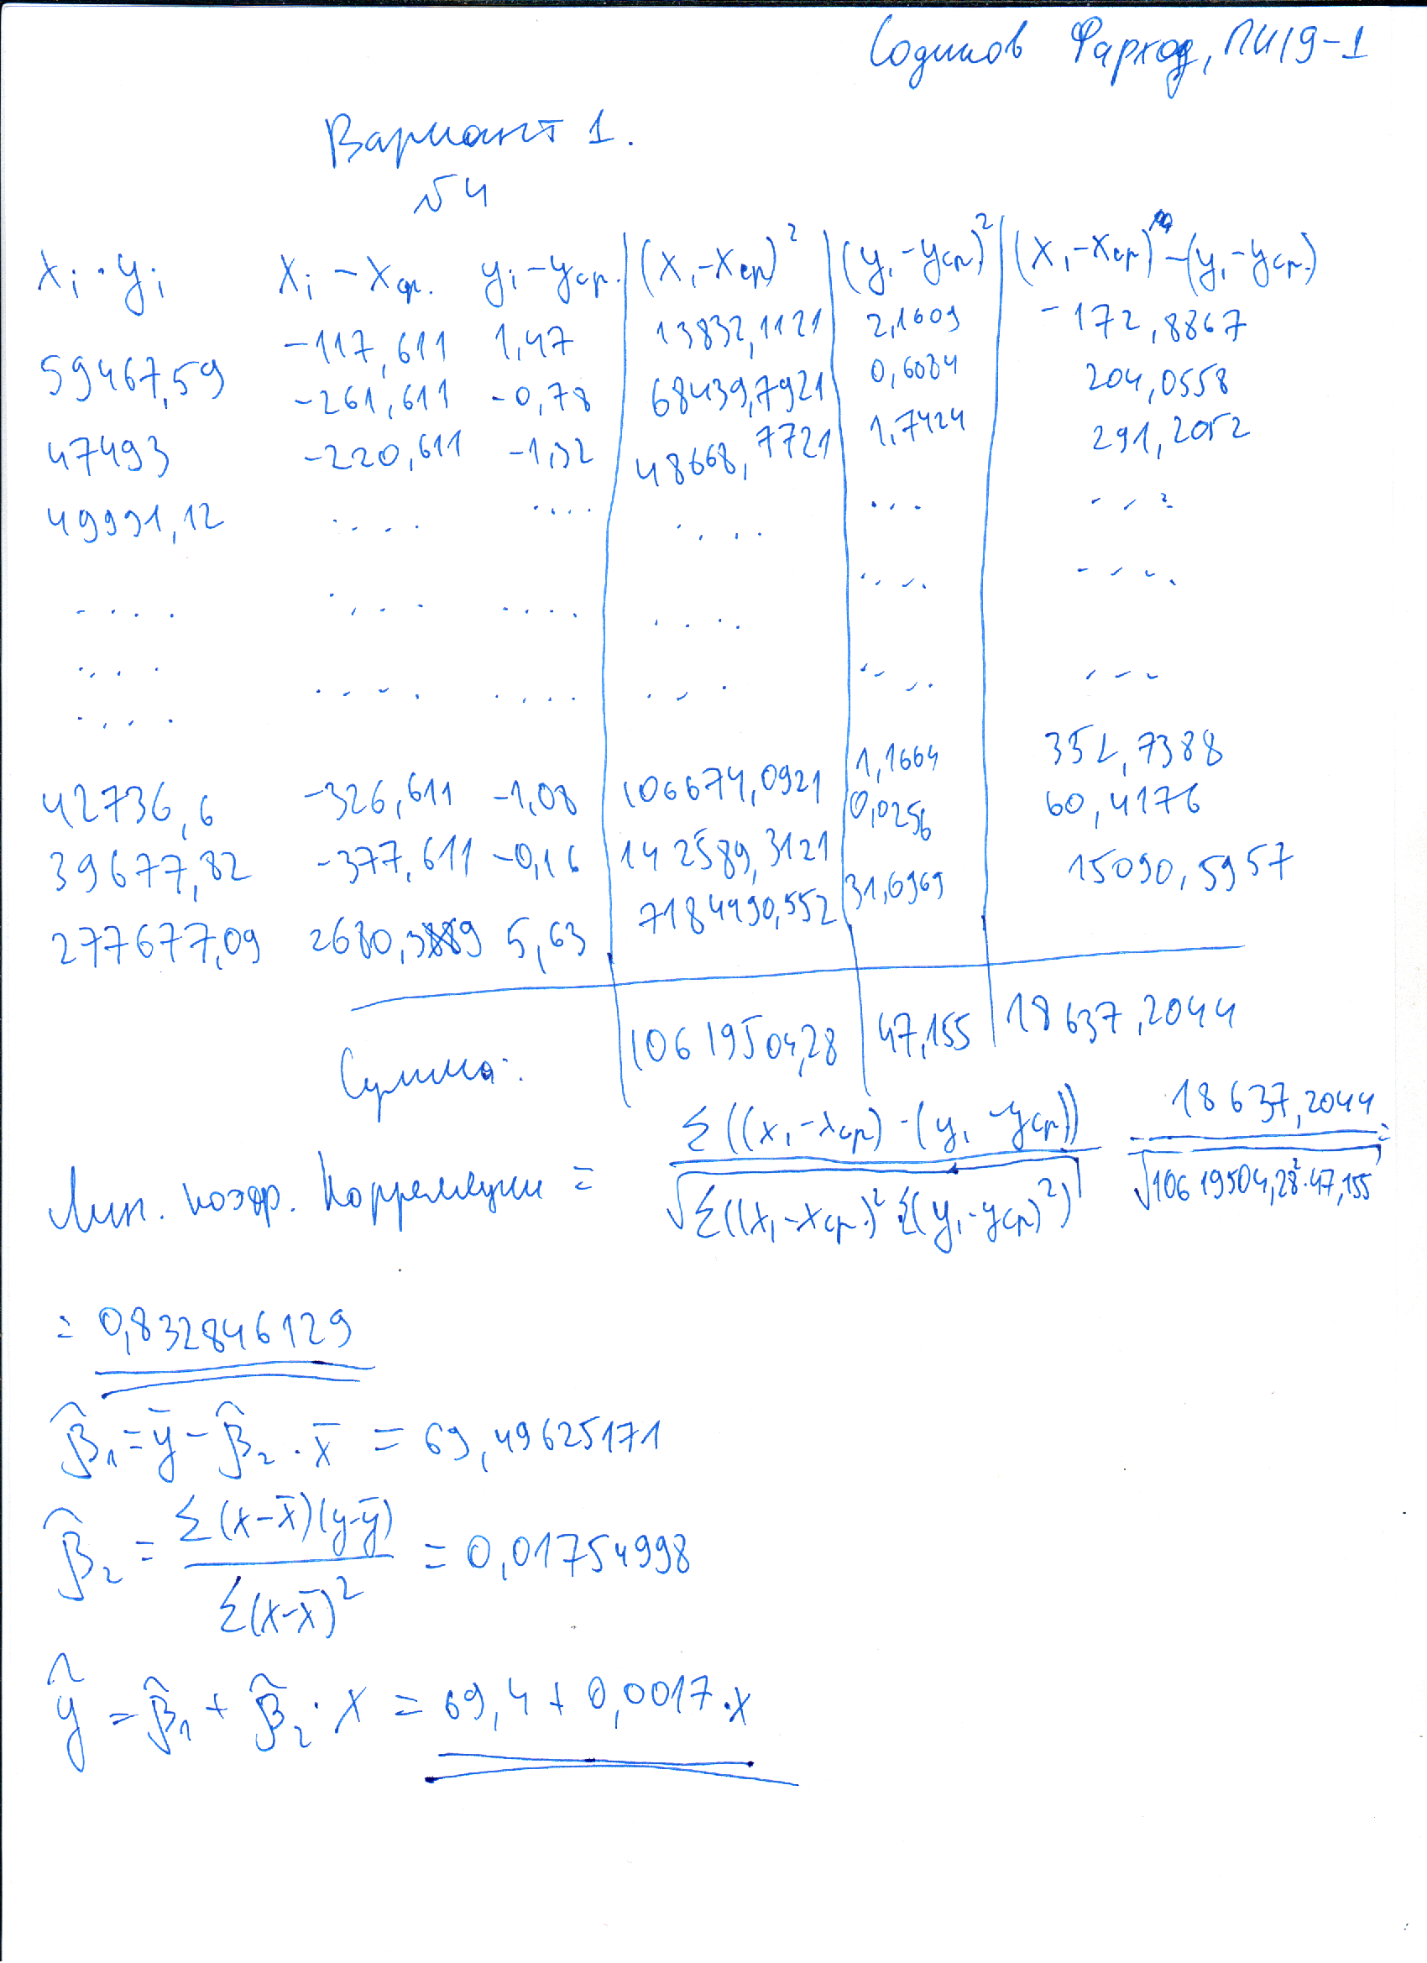 Содиков Фарход, ПИ19-1
Вариант 1.
№4
xi · yi xi - xср. yi - yср. (xi - xср)² (yi - yср)² (xi - xср) - (yi - yср.)
59467,59 -117,611 1,47 13832,1121 2,1609 -172,8867
47493 -261,611 -0,78 68439,7921 0,6084 204,0558
49991,12 -220,611 -1,32 48668,7721 1,7424 291,2052
.... .... .... .... ... ...
.... .... .... .... .... ....
.... .... .... ... .... ...
....
42736,6 -326,611 -1,08 106674,0921 1,1664 352,7388
39677,82 -377,611 -0,16 142589,3121 0,0256 60,4176
277677,09 2680,3889 5,63 7184490,552 31,6969 15090,5957
Сумма: 10619504,28 47,155 18637,2044
Лин. коэф. Корреляции = Σ((xi - xср) · (yi - yср)) / √Σ((xi - xср.)² Σ(yi - yср)²) 18637,2044 / √10619504,28² · 47,155 =
= 0,832846129
β̂₁ = ȳ - β̂₂ · x̄ = 69,49625171
β̂₂ = Σ(x-x̄)(y-ȳ) / Σ(x-x̄)² = 0,01754998
ŷ = β̂₁ + β̂₂ · x = 69,4 + 0,0017 · x